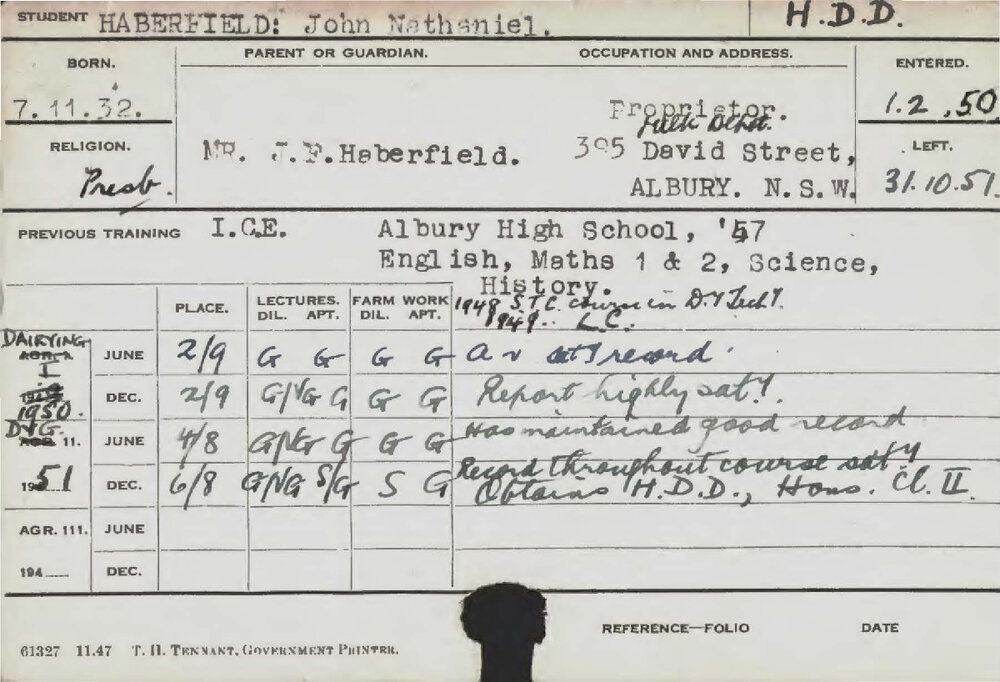 STUDENT HABERFIELD: John Nathaniel. H.D.D.
BORN. PARENT OR GUARDIAN. OCCUPATION AND ADDRESS. ENTERED.
7.11.32. Proprietor. 1.2.50
RELIGION. Mr. J.F.Haberfield. 395 David Street, LEFT.
Presb. ALBURY. N.S.W. 31.10.51.
PREVIOUS TRAINING I.C.E. Albury High School, '47
English, Maths 1 & 2, Science,
History.
1948 S.T.C. course in D.Y Tech?
1949. L.C.
PLACE. LECTURES. FARM WORK
DIL. APT. DIL. APT.
DAIRYING I JUNE 2/9 G G G G A v record.
1950. DEC. 2/9 G/VG G G G Report highly saty.
DYG 11. JUNE 4/8 G/VG G G G Has maintained good record
1951 DEC. 6/8 G/VG S/G S G Record throughout course saty
Obtains H.D.D., Hons. Cl. II.
AGR. 111. JUNE
194 DEC.
REFERENCE—FOLIO DATE
61327 11.47 T. H. TENNANT, GOVERNMENT PRINTER.